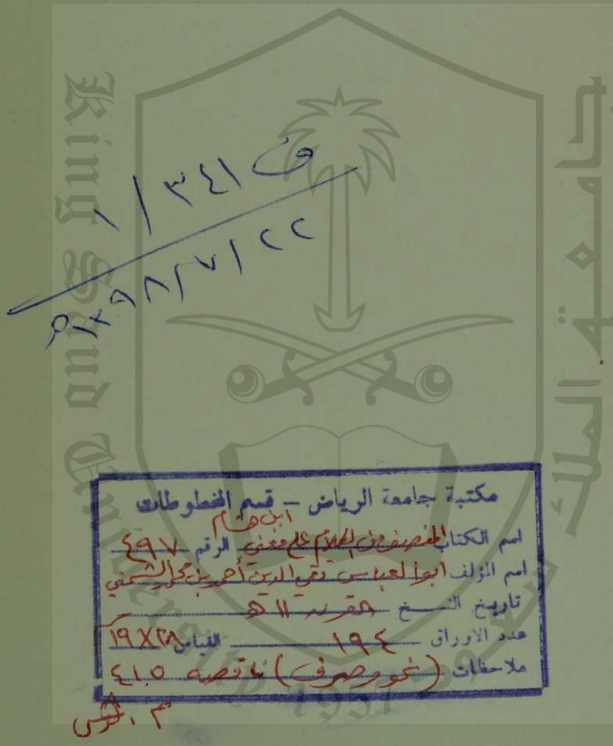 ف ٣٤١ / ١
٢٢ / ٧ / ١٣٩٨ م
مكتبة جامعة الرياض – قسم المخطوطات
ابن هشام
اسم الكتاب المنصف من الكلام على مغني الرقم ٤٩٧
اسم المؤلف ابو العباس تقي الدين أحمد بن محمد الشمني
تاريخ النسخ القرن ١١ هـ
عدد الاوراق ١٩٤ القياس ٢٨ X ١٩
ملاحظات (نحو وصرف) ناقصه ٤١٥
King Saud University
جامعة الملك سعود
1957